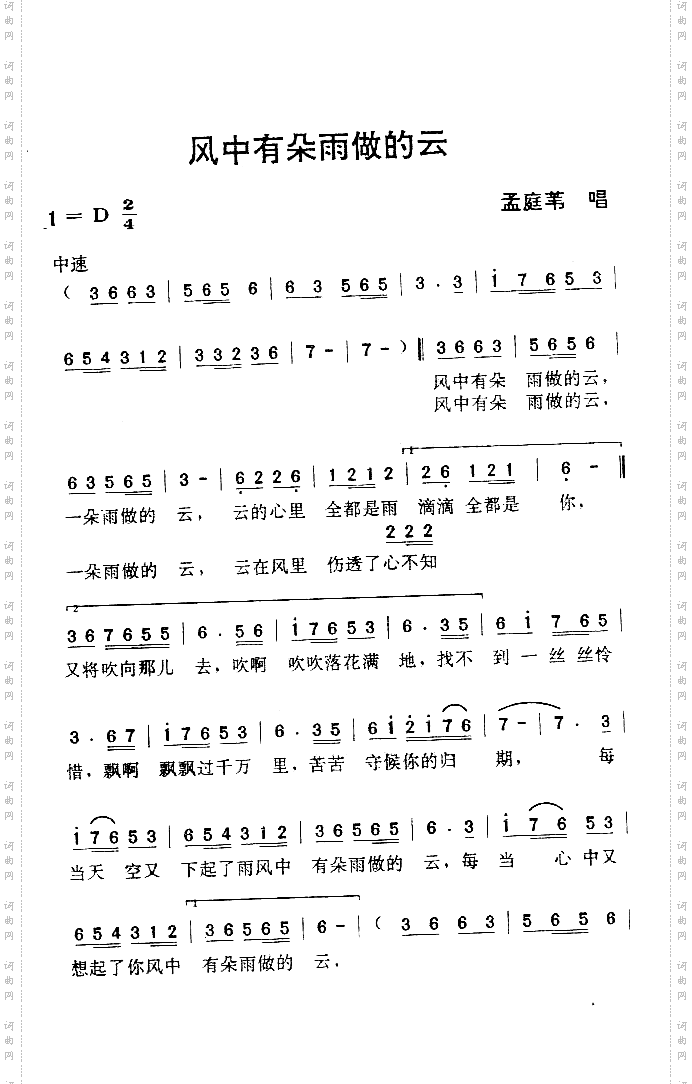 风中有朵雨做的云
1 = D 2/4
孟庭苇 唱
中速
( 3 6 6 3 | 5 6 5 6 | 6 3 5 6 5 | 3 . 3 | i 7 6 5 3 |
6 5 4 3 1 2 | 3 3 2 3 6 | 7 - | 7 - ) ‖ 3 6 6 3 | 5 6 5 6 |
风中有朵 雨做的云,
风中有朵 雨做的云,
6 3 5 6 5 | 3 - | 6 2 2 6 | 1 2 1 2 | 2 6 1 2 1 | 6 - ‖
一朵雨做的 云, 云的心里 全都是雨 滴滴 全都是 你,
2 2 2
一朵雨做的 云, 云在风里 伤透了心不知
3 6 7 6 5 5 | 6 . 5 6 | i 7 6 5 3 | 6 . 3 5 | 6 i 7 6 5 |
又将吹向那儿 去,吹啊 吹吹落花满 地,找不 到 一 丝 丝怜
3 . 6 7 | i 7 6 5 3 | 6 . 3 5 | 6 i 2 i 7 6 | 7 - | 7 . 3
惜,飘啊 飘飘过千万 里,苦苦 守候你的归 期, 每
i 7 6 5 3 | 6 5 4 3 1 2 | 3 6 5 6 5 | 6 . 3 | i 7 6 5 3 |
当天 空又 下起了雨风中 有朵雨做的 云,每 当 心 中又
6 5 4 3 1 2 | 3 6 5 6 5 | 6 - | ( 3 6 6 3 | 5 6 5 6 |
想起了你风中 有朵雨做的 云.